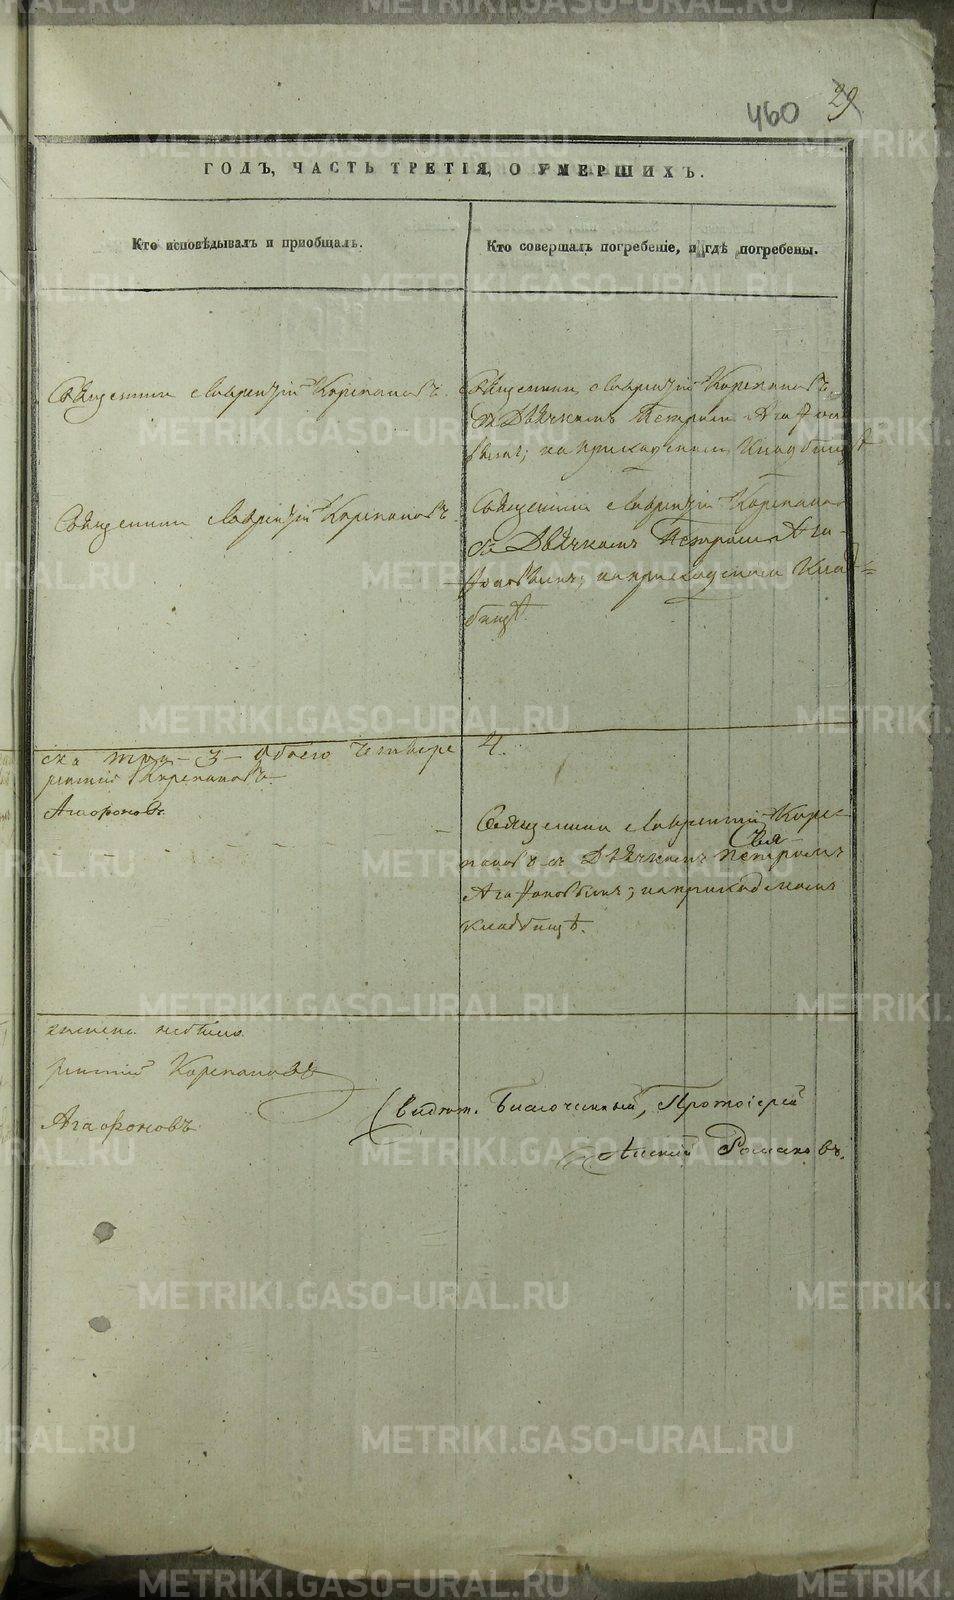 460 29
ГОДЪ, ЧАСТЬ ТРЕТІЯ, О УМЕРШИХЪ.
Кто исповѣдывалъ и пріобщалъ.
Кто совершалъ погребеніе, и гдѣ погребены.
Священникъ Лаврентій Корепановъ.
Священникъ Лаврентій Корепановъ
съ Дьячкомъ Петромъ Агафоно-
вымъ; на приходскомъ кладбищѣ
Священникъ Лаврентій Корепановъ.
Священникъ Лаврентій Корепановъ
съ Дьячкомъ Петромъ Ага-
фоновымъ; на приходскомъ Клад-
бищѣ.
ска три - 3 - обоего четверо 4.
рентій Корепановъ
Агафоновъ.
Священникъ Лаврентій Коре-
пановъ съ Дьячкомъ Петромъ
Агафоновымъ; на приходскомъ
кладбищѣ.
рентій Корепановъ
Агафоновъ
Свидѣт. Благочинный, Протоіерей
Алексій Романовъ.
METRIKI.GASO-URAL.RU